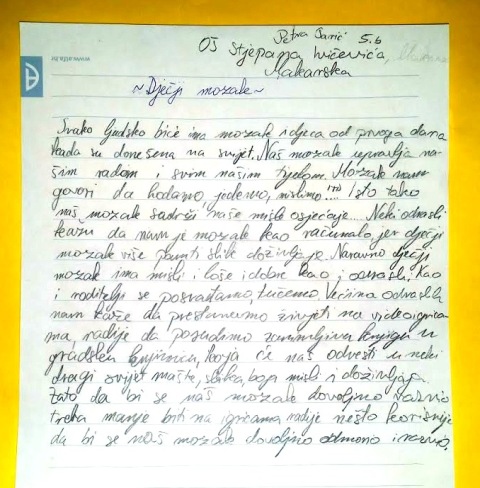 Petra Sarić 5.b
OŠ Stjepana Ivičevića,
Makarska
www.olx.hr
~Dječji mozak~
Svako ljudsko biće ima mozak i djeca od prvoga dana
kada su donešena na svijet. Naš mozak upravlja na-
šim radom i svim našim tijelom. Mozak nam
govori da hodamo, jedemo, mislimo... Isto tako
naš mozak sadrži naše misli osjećaje... Neki odrasli
kažu da nam je mozak kao računalo, jer dječji
mozak više pamti slike doživljaje. Naravno dječji
mozak ima misli i loše i dobre kao i odrasli. Kao
i roditelji se posvađamo, tučemo. Većina odraslih
nam kaže da prestanemo živjeti na videoigrica
ma, radije da posudimo zanimljivu knjigu u
gradskoj knjižnici, koja će nas odvesti u neki
dragi svijet mašte, slika, boja misli i doživljaja.
Zato da bi se naš mozak dovoljno razvio
treba manje biti na igricama radije nešto korisnije
da bi se naš mozak dovoljno odmorio i razvio.